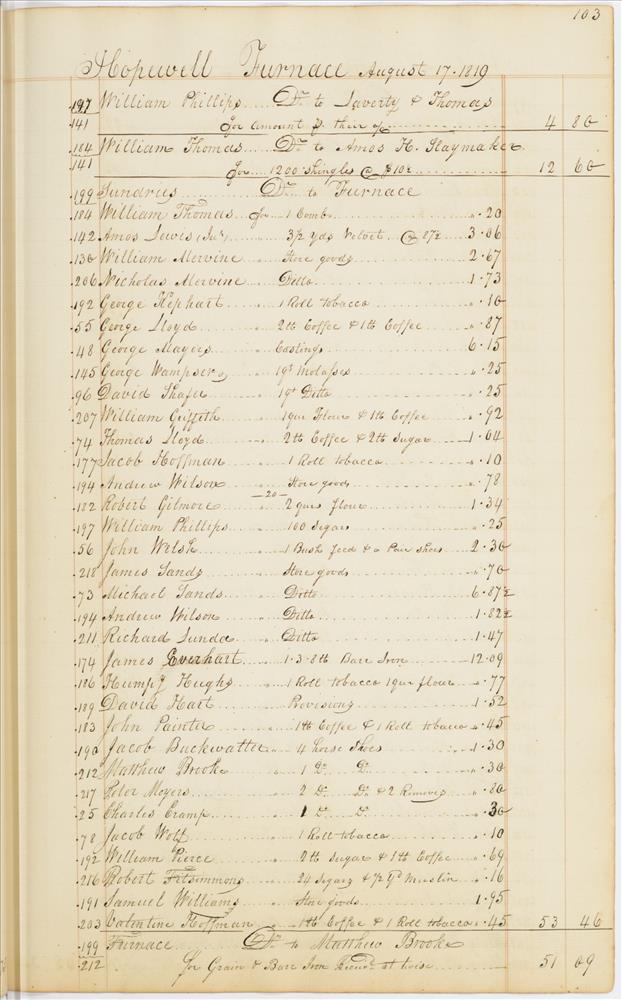 103
Hopewell Furnace August 17. 1819
197 William Phillips Dr. to Laverty & Thomas
141 for amount of their 4 80
184 William Thomas Dr. to Amos H. Slaymaker
141 for 1200 Shingles @ $10 12 60
199 Sundries Dr. to Furnace
184 William Thomas for 1 Comb .20
142 Amos Lewis (Jur) 3 1/2 Yds Velvet @ 87 1/2 3.06
130 William Mervine Store goods 2.67
206 Nicholas Mervine Ditto 1.73
192 George Hephart 1 Roll tobacco .10
55 George Lloyd 2 lb Coffee & 1 lb Coffee .87
48 George Mayers Castings 6.15
145 George Wampser 1 qt Molasses .25
96 David Shafer 1 qt Ditto .25
207 William Griffith 1 qur Flour & 1 lb Coffee .92
74 Thomas Lloyd 2 lb Coffee & 2 lb Sugar 1.04
177 Jacob Hoffman 1 Roll tobacco .10
194 Andrew Wilson Store goods .78
—20—
182 Robert Gilmore 2 qurs flour 1.34
197 William Phillips 100 Segars .25
56 John Welsh 1 Bush feed & a Pair Shoes 2.30
218 James Sands Store goods .70
73 Michael Sands Ditto 6.87 1/2
194 Andrew Wilson Ditto 1.82 1/2
211 Richard Lunda Ditto 1.47
174 James Everhart 1.3.8 lb Barr Iron 12.09
186 Humpy Hughs 1 Roll tobacco 1 qur flour .77
189 David Hart Provisions 1.52
183 John Painter 1 lb Coffee & 1 Roll tobacco .45
190 Jacob Buckwatter 4 horse Shoes 1.30
212 Matthew Brooke 1 Do. Do. .30
217 Peter Meyers 2 Do. Do. & 2 Removes .80
25 Charles Cramp 1 Do. Do. .30
78 Jacob Wolf 1 Roll tobacco .10
192 William Pierce 2 lb Sugar & 1 lb Coffee .69
216 Robert Fitsimmons 24 Segars & 1/2 Yd Muslin .16
191 Samuel Williams Store goods 1.95
203 Valentine Hoffman 1 lb Coffee & 1 Roll tobacco .45 53 46
199 Furnace Dr. to Matthew Brooke
212 for Grain & Barr Iron at twice 51 09